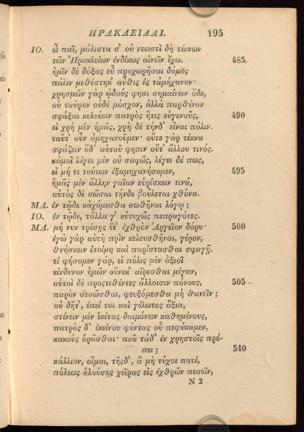 ΗΡΑΚΛΕΙΔΑΙ. 195
ΙΟ. ὦ παῖ, μάλιστα σ' οὐ νεωστὶ δὴ τέκνων
τῶν Ἡρακλείων ἐνδίκως αἰνεῖν ἔχω. 485
ἡμῖν δὲ δόξας εὖ προχωρῆσαι δόμος
πάλιν μεθέστηκ' αὖθις ἐς τἀμήχανον·
χρησμῶν γὰρ ᾠδούς φησι σημαίνειν ὅδε,
οὐ ταῦρον οὐδὲ μόσχον, ἀλλὰ παρθένον
σφάξαι κελεύειν πατρὸς ἥτις εὐγενοῦς, 490
εἰ χρὴ μὲν ἡμᾶς, χρὴ δὲ τήνδ' εἶναι πόλιν.
ταῦτ' οὖν ἀμηχανοῦμεν· οὔτε γὰρ τέκνα
σφάξειν ὅδ' αὐτοῦ φησιν οὔτ' ἄλλου τινός.
κἀμοὶ λέγει μὲν οὐ σαφῶς, λέγει δέ πως,
εἰ μή τι τούτων ἐξαμηχανήσομεν, 495
ἡμᾶς μὲν ἄλλην γαῖαν εὑρίσκειν τινά,
αὐτὸς δὲ σῶσαι τήνδε βούλεται χθόνα.
ΜΑ. ἐν τῷδε κἀχόμεσθα σωθῆναι λόγῳ;
ΙΟ. ἐν τῷδε, τἄλλα γ' εὐτυχῶς πεπραγότες.
ΜΑ. μὴ νῦν τρέσῃς ἔτ' ἐχθρὸν Ἀργεῖον δόρυ· 500
ἐγὼ γὰρ αὐτὴ πρὶν κελευσθῆναι, γέρον,
θνήσκειν ἑτοίμη καὶ παρίστασθαι σφαγῇ.
τί φήσομεν γάρ, εἰ πόλις μὲν ἀξιοῖ
κίνδυνον ἡμῶν οὕνεκ' αἴρεσθαι μέγαν,
αὐτοὶ δὲ προστιθέντες ἄλλοισιν πόνους, 505
παρὸν σεσῶσθαι, φευξόμεσθα μὴ θανεῖν;
οὐ δῆτ', ἐπεί τοι καὶ γέλωτος ἄξια,
στένειν μὲν ἱκέτας δαιμόνων καθημένους,
πατρὸς δ' ἐκείνου φύντας οὗ πεφύκαμεν,
κακοὺς ὁρᾶσθαι· ποῦ τάδ' ἐν χρηστοῖς πρέ-
πει; 510
κάλλιον, οἶμαι, τῆσδ', ἃ μὴ τύχοι ποτέ,
πόλεως ἁλούσης χεῖρας εἰς ἐχθρῶν πεσεῖν,
N 2